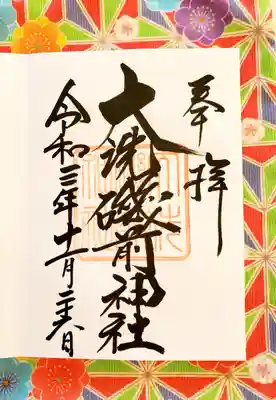 奉拝
大洗磯前神社
令和三年十一月二十六日